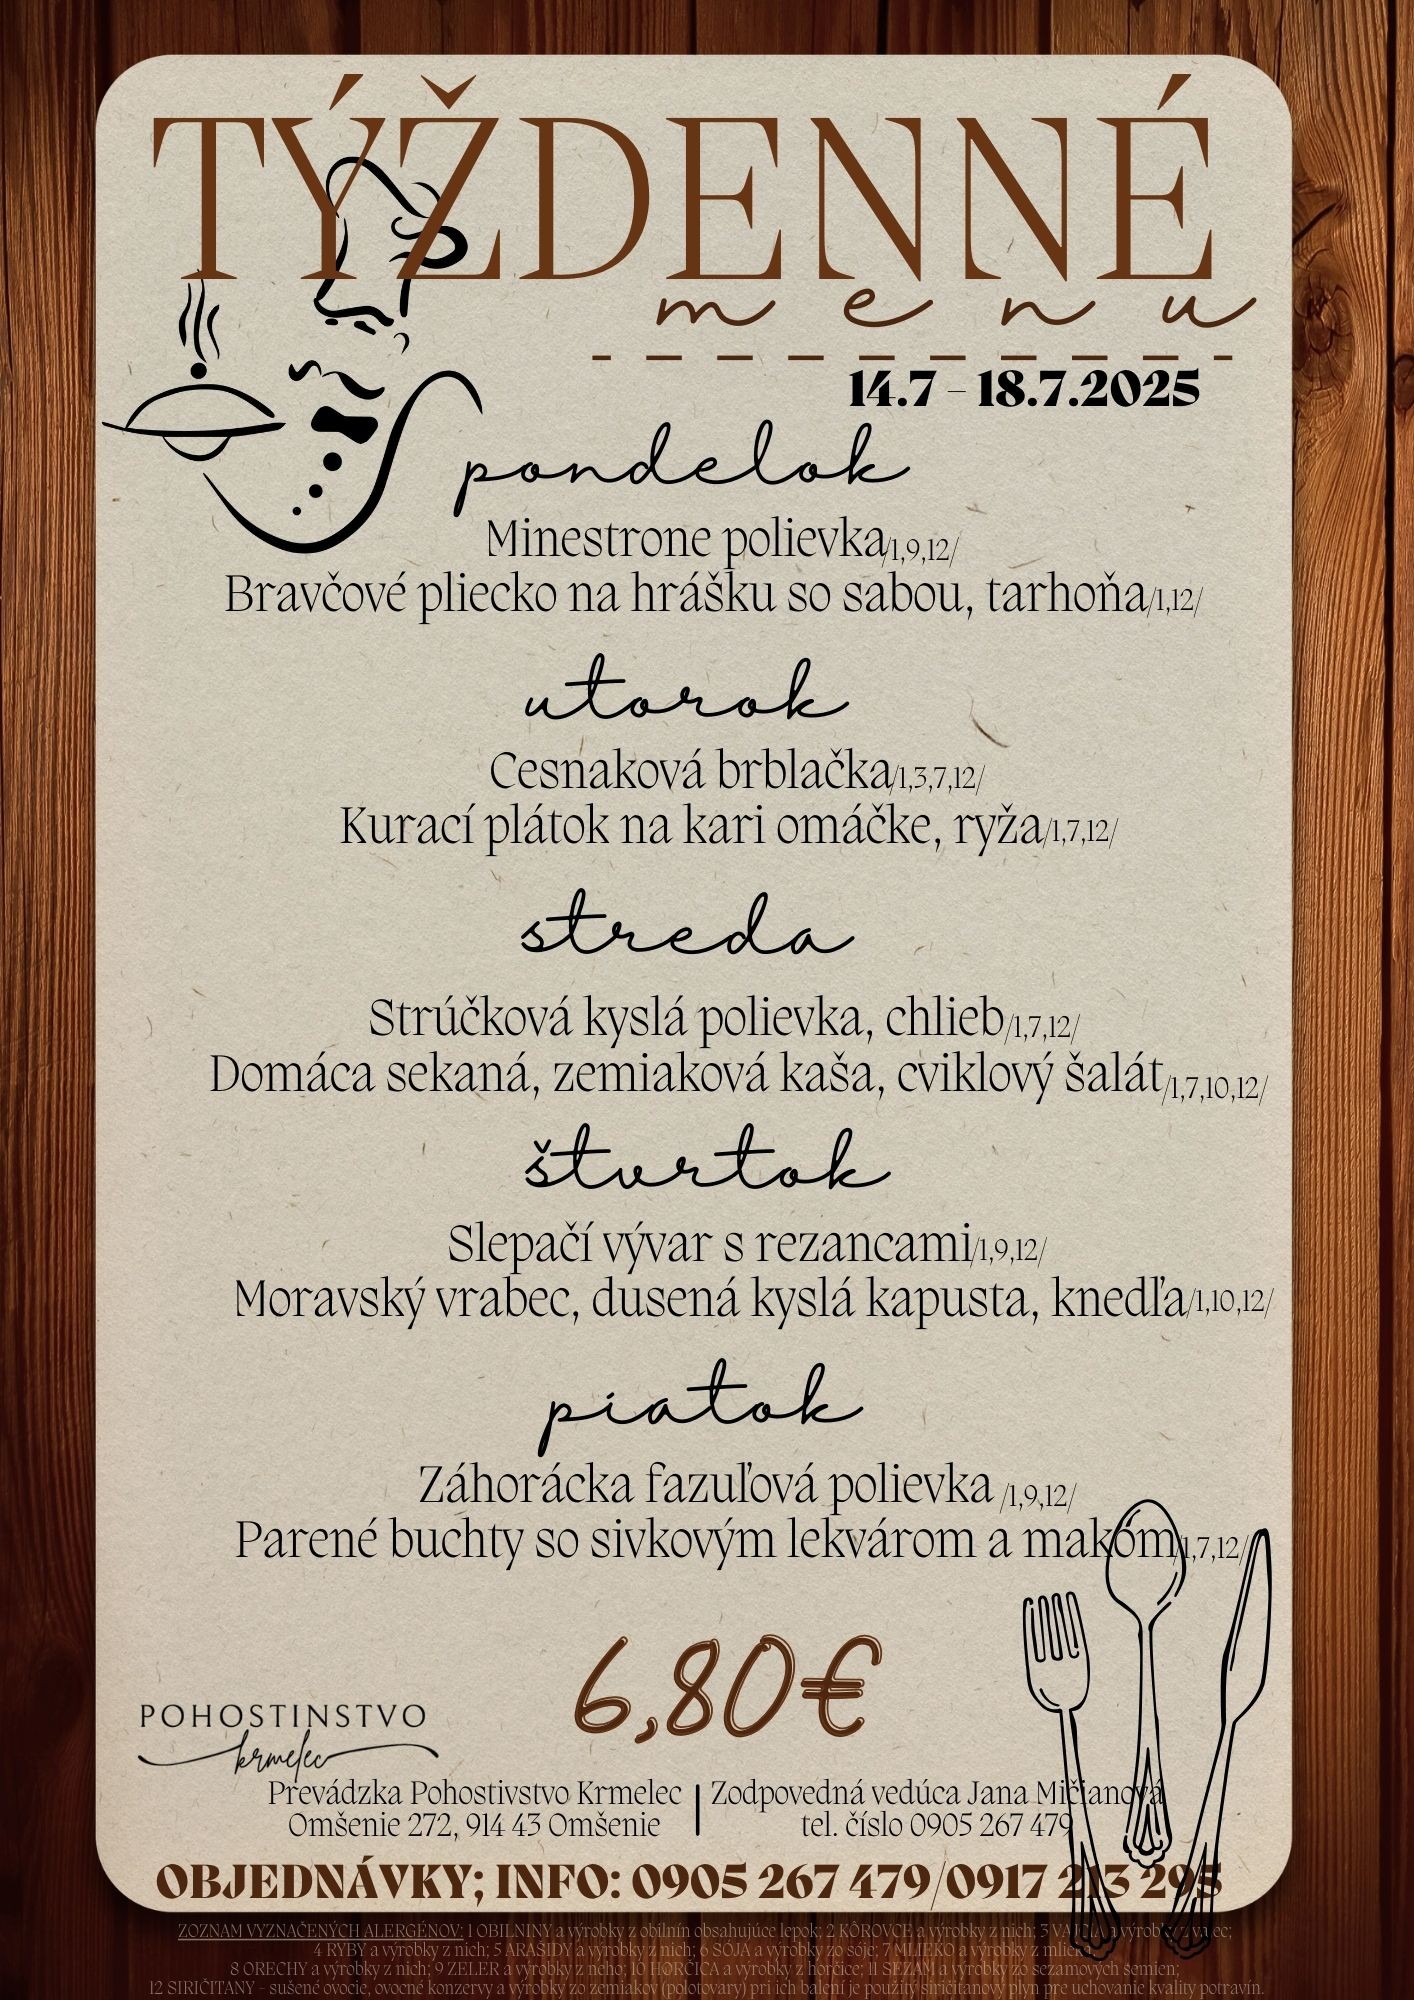 TÝŽDENNÉ
menu
14.7 - 18.7.2025
pondelok
Minestrone polievka/1,9,12/
Bravčové pliecko na hrášku so sabou, tarhoňa/1,12/
utorok
Cesnaková brblačka/1,3,7,12/
Kurací plátok na kari omáčke, ryža/1,7,12/
streda
Strúčková kyslá polievka, chlieb/1,7,12/
Domáca sekaná, zemiaková kaša, cviklový šalát/1,7,10,12/
štvrtok
Slepačí vývar s rezancami/1,9,12/
Moravský vrabec, dusená kyslá kapusta, knedľa/1,10,12/
piatok
Záhorácka fazuľová polievka /1,9,12/
Parené buchty so sivkovým lekvárom a makom/1,7,12/
6,80€
POHOSTINSTVO
krmelec
Prevádzka Pohostivstvo Krmelec | Zodpovedná vedúca Jana Mičianová
Omšenie 272, 914 43 Omšenie | tel. číslo 0905 267 479
OBJEDNÁVKY; INFO: 0905 267 479/0917 213 295
ZOZNAM VYZNAČENÝCH ALERGÉNOV: 1 OBILNINY a výrobky z obilnín obsahujúce lepok; 2 KÔROVCE a výrobky z nich; 3 VAJCIA a výrobky z vajec;
4 RYBY a výrobky z nich; 5 ARAŠIDY a výrobky z nich; 6 SÓJA a výrobky zo sóje; 7 MLIEKO a výrobky z mlieka;
8 ORECHY a výrobky z nich; 9 ZELER a výrobky z neho; 10 HORČICA a výrobky z horčice; 11 SEZAM a výrobky zo sezamových semien;
12 SIRIČITANY - sušené ovocie, ovocné konzervy a výrobky zo zemiakov (polotovary) pri ich balení je použitý siričitanový plyn pre uchovanie kvality potravín.